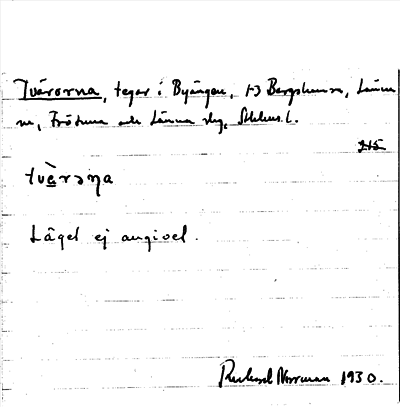 Tvärorna, tegar i Byängen, 1-3 Bergshamra, Länna
m, Frötuna och Länna slg, Sthlms l.
215
tvɛ̀rəṇa
Läget ej angivet.
Richard Norrman 1930.